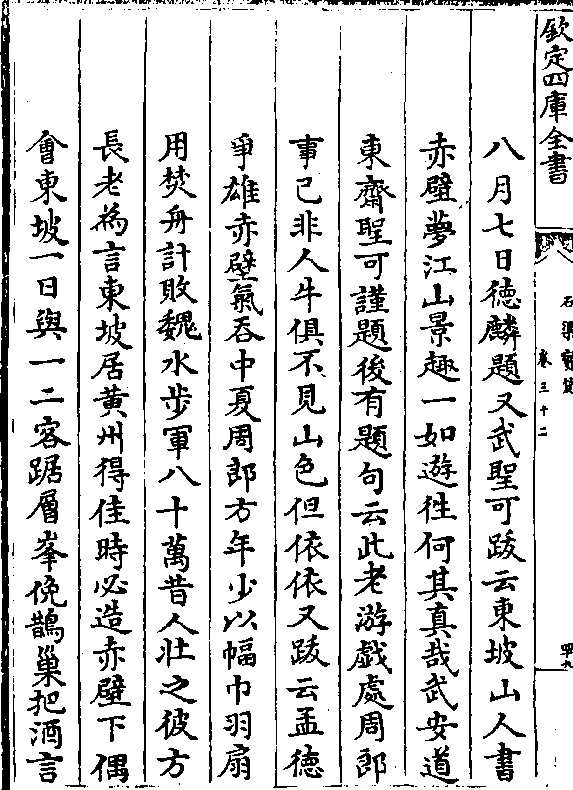 欽定四庫全書
石渠寶笈
卷三十二
四九
八月七日德麟題又武聖可跋云東坡山人書
赤壁夢江山景趣一如遊徃何其真哉武安道
東齋聖可謹題後有題句云此老游戲處周郎
事已非人牛俱不見山色但依依又跋云孟德
爭雄赤壁氣吞中夏周郎方年少以幅巾羽扇
用焚舟計敗魏水步軍八十萬昔人壯之彼方
長老為言東坡居黄州得佳時必造赤壁下偶
會東坡一日與一二客踞層峯俛鵲巢把酒言